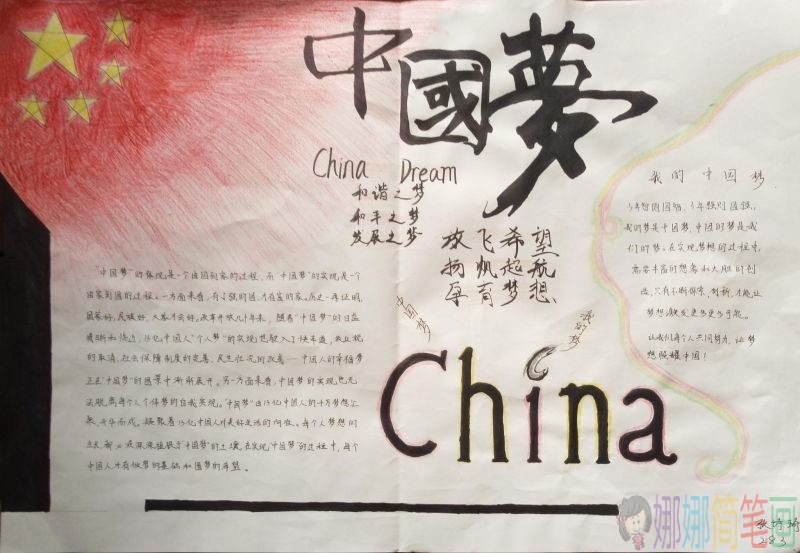 中國夢
China Dream
和谐之梦
和平之梦
发展之梦
放飞希望
扬帆起航
孕育梦想
中国梦
我的梦
China
"中国梦"的体现,是一个由国到家的过程,而"中国梦"的实现,是一个
由家到国的过程。一方面来看,有了强的国,才有富的家。历史一再证明,
国家好,民族好,大家才会好。改革开放几十年来,随着"中国梦"的日益
清晰和临近,13亿中国人"个人梦"的实现也驶入了快车道,农业税
的取消,社会保障制度的完善,民生状况的改善——中国人的幸福梦
正在"中国梦"的图景中渐渐展开。另一方面来看,中国梦的实现也无
法脱离每个人个体梦的自我实现。"中国梦"由13亿中国人的千万梦想汇
聚、升华而成,凝聚着13亿中国人对美好生活的向往。每个人梦想的
在实现"中国梦"的过程中,每个
中国人才有做梦的基础和圆梦的希望。
我的中国梦
少年智则国智,少年强则国强。
我的梦是中国梦,中国的梦是我
们的梦。在实现梦想的过程中,
需要丰富的想象和大胆的创
造,只有不断探索,创新,才能让
梦想激发更多更多可能。
让我们每个人共同努力,让梦
想照耀中国!
娜娜简笔画
283